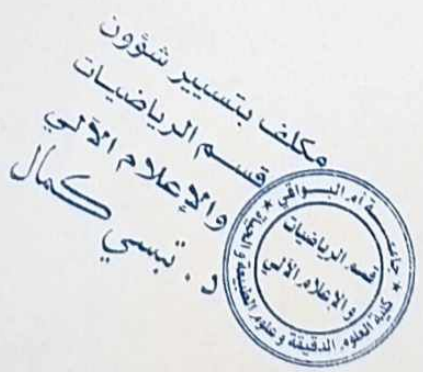 مكلف بتسيير شؤون
قسم الرياضيات
والإعلام الآلي
د. تبسي كمال
جامعة أم البواقي
كلية العلوم الدقيقة وعلوم الطبيعة و
قسم الرياضيات
والإعلام الآلي